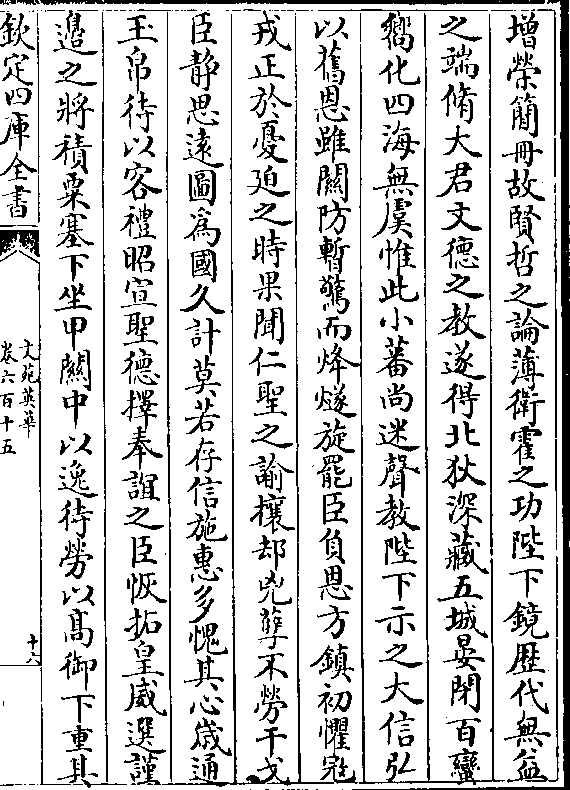 增榮簡冊故賢哲之論薄衛霍之功陛下鏡歷代無益
之端脩大君文德之教遂得北狄深藏五城晏閉百蠻
嚮化四海無虞惟此小蕃尚迷聲教陛下示之大信弘
以舊恩雖關防暫驚而烽燧旋罷臣負恩方鎮初懼宼
戎正於憂廹之時果聞仁聖之諭攘却兇孽不勞干戈
臣靜思遠圖爲國久計莫若存信施惠多愧其心歲通
玉帛待以客禮昭宣聖德擇奉誼之臣恢拓皇威選謹
邉之將積粟塞下坐甲關中以逸待勞以髙御下重其
欽定四庫全書
文苑英華
卷六百十五
十六